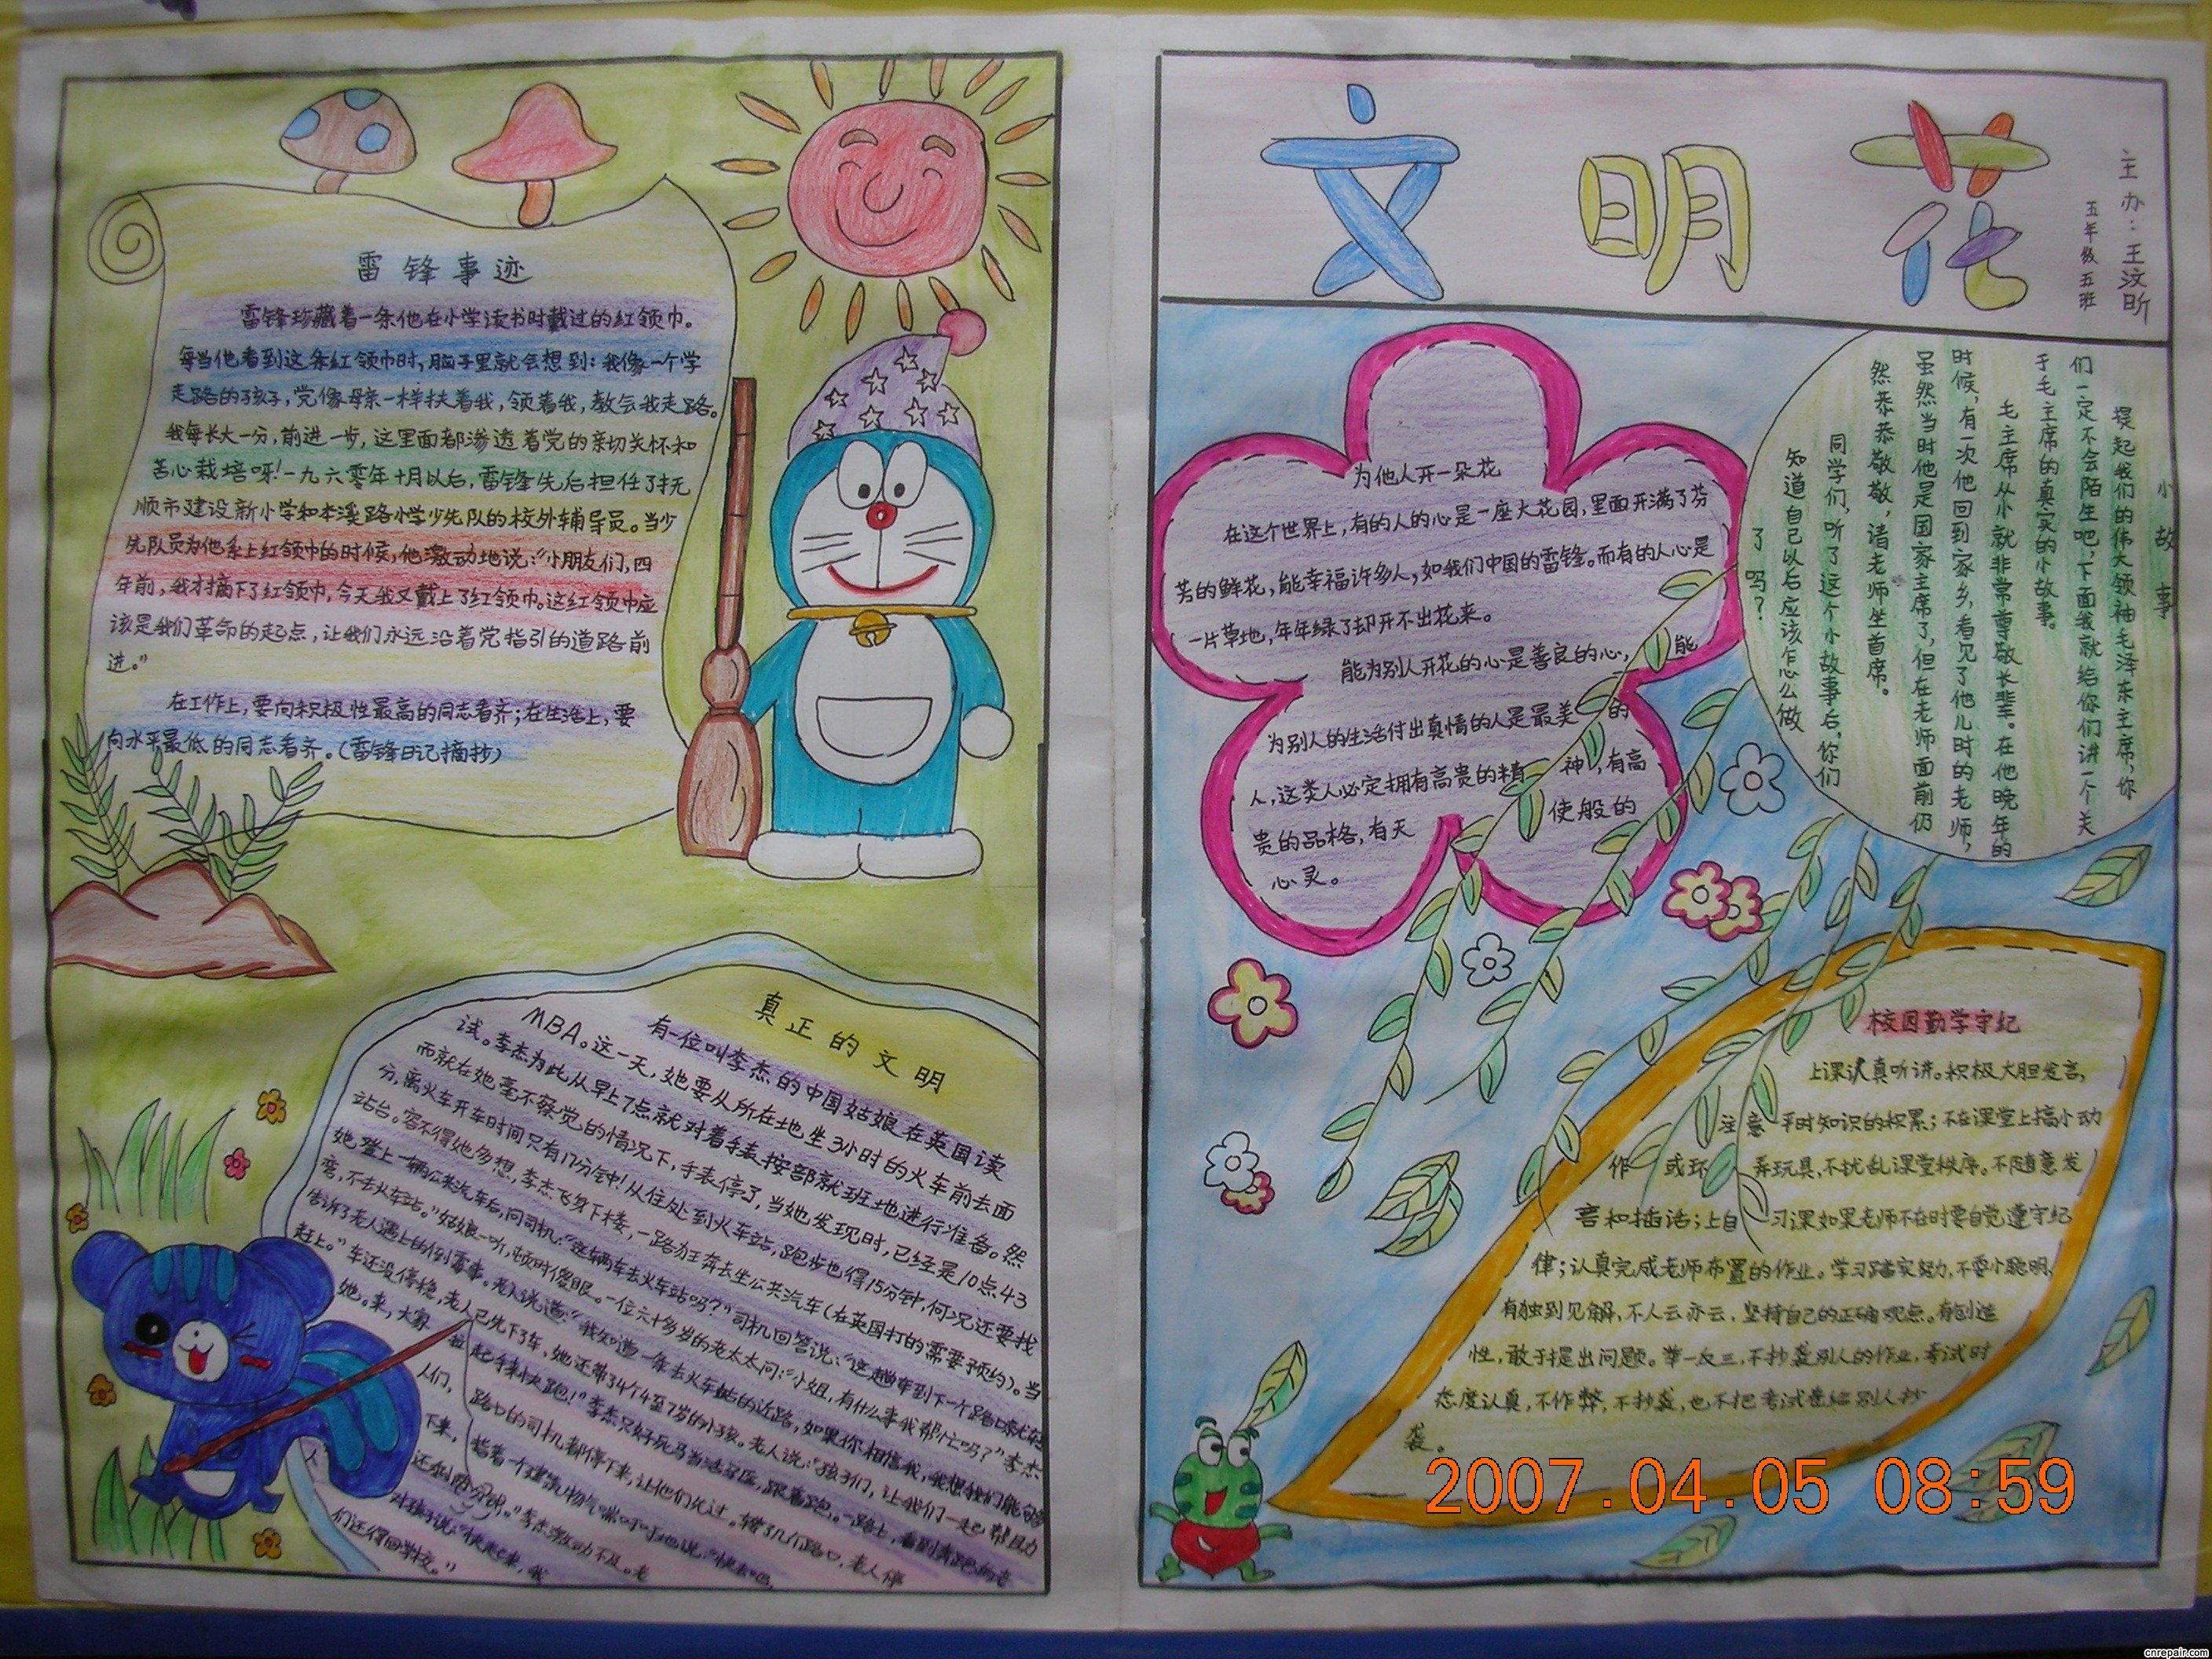 雷锋事迹
雷锋珍藏着一条他在小学读书时戴过的红领巾。
每当他看到这条红领巾时,脑子里就会想到:我像一个学
走路的孩子,党像母亲一样扶着我,领着我,教会我走路。
我每长大一分,前进一步,这里面都渗透着党的亲切关怀和
苦心栽培呀!一九六零年十月以后,雷锋先后担任了抚
顺市建设新小学和本溪路小学少先队的校外辅导员。当少
先队员为他系上红领巾的时候,他激动地说:“小朋友们,四
年前,我才摘下了红领巾,今天我又戴上了红领巾。这红领巾应
该是我们革命的起点,让我们永远沿着党指引的道路前
进。”
在工作上,要向积极性最高的同志看齐;在生活上,要
向水平最低的同志看齐。(雷锋日记摘抄)
真正的文明
有一位叫李杰的中国姑娘在英国读
MBA。这一天,她要从所在地坐3小时的火车前去面
试。李杰为此从早上7点就对着手表按部就班地进行准备。然
而就在她毫不察觉的情况下,手表停了,当她发现时,已经是10点43
分,离火车开车时间只有17分钟!从住处到火车站,跑步也得15分钟,何况还要找
站台。容不得她多想,李杰飞身下楼,一路狂奔去坐公共汽车(在英国打的需要预约)。当
她登上一辆公共汽车后,问司机:“这辆车去火车站吗?”司机回答说:“这趟车到下一个路口
弯,不去火车站。”姑娘一听,顿时傻眼。一位六十多岁的老太太问:“小姐,有什么事我帮忙吗?”李杰
告诉了老人遇上的倒霉事。老人说道:“我知道一条去火车站的近路,如果你相信我,我想我们能够
赶上。”车还没停稳,老人已先下了车,她还带了4个4至7岁的小孩。老人说:“孩子们,让我们一起帮助
她。来,大家拉起手来快跑!”李杰只好死马当活马医,跟着跑。一路上,看到奔跑的老
人们,路口的司机都停下来,让他们先过。转了几个路口,老人停
下来,指着一个建筑物气喘吁吁地说:“快去吧,
还剩两分钟。”李杰激动不已。老
人对孩子说:“快走来,我
们还得回学校。”
文明花
主办:王汶昕
五年级五班
为他人开一朵花
在这个世界上,有的人的心是一座大花园,里面开满了芬
芳的鲜花,能幸福许多人,如我们中国的雷锋。而有的人心是
一片草地,年年绿了却开不出花来。
能为别人开花的心是善良的心,能
为别人的生活付出真情的人是最美的
人,这类人必定拥有高贵的精神,有高
贵的品格,有天使般的
心灵。
小故事
提起我们的伟大领袖毛泽东主席,你
们一定不会陌生吧,下面我就给你们讲一个关
于毛主席的真实的小故事。
毛主席从小就非常尊敬长辈。在他晚年的
时候,有一次他回到家乡,看见了他儿时的老师,
虽然当时他是国家主席了,但在老师面前仍
然恭恭敬敬,请老师坐首席。
同学们,听了这个小故事后,你们
知道自己以后应该怎么做
了吗?
校园勤学守纪
上课认真听讲。积极大胆发言,
注意平时知识的积累;不在课堂上搞小动
作或玩弄玩具,不扰乱课堂秩序。不随意发
言和插话;上自习课如果老师不在时要自觉遵守纪
律;认真完成老师布置的作业。学习踏实努力,不耍小聪明,
有独到见解,不人云亦云,坚持自己的正确观点。有创造
性,敢于提出问题。举一反三,不抄袭别人的作业,考试时
态度认真,不作弊,不抄袭,也不把考试卷给别人抄
袭。
2007.04.05 08:59
cnrepair.com